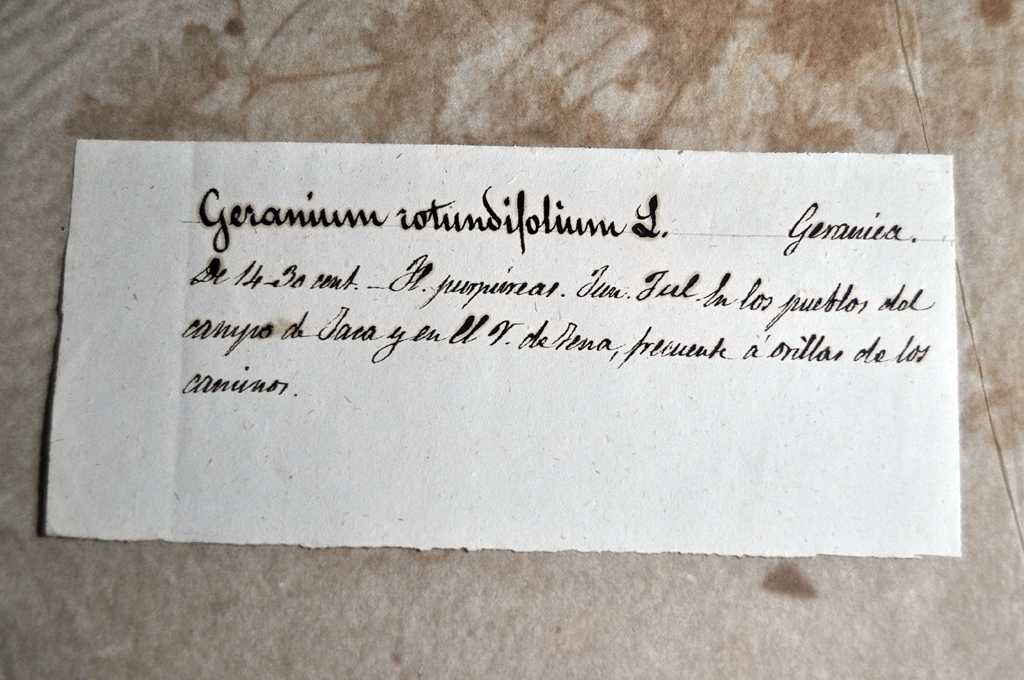 Geranium rotundifolium L. Geraniea.
De 14-30 cent. - Fl. purpúreas. Jun. Jul. En los pueblos del
campo de Jaca y en el V. de Tena, frecuente á orillas de los
caminos.